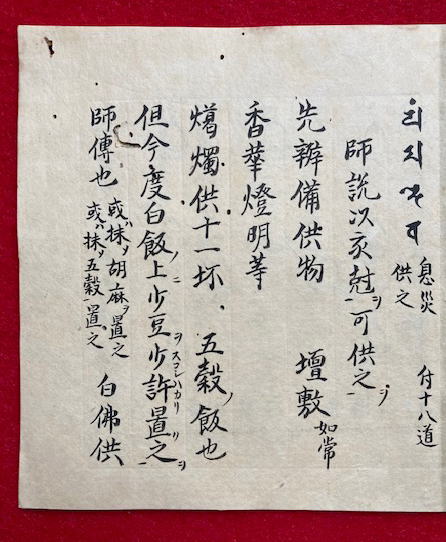 息災
供之
付十八道
師説以亥尅ヲ可供之
先辦備供物 壇敷如常
香華燈明等
燭供十一坏 五穀ノ飯也
但今度白飯ノ上ニ少豆ヲ少許スコシハカリ置之
師傳也
或ハ抹ソ胡麻ヲ置之
或ハ抹ソ五穀置之
白佛供